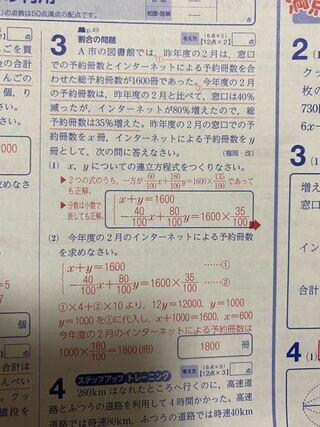 の利用
p.49
1)の点数は50点満点の配点です。
3 割合の問題
考え方
[6点×2]
[12点×2]
A市の図書館では，昨年度の2月は，窓口
での予約冊数とインターネットによる予約冊数を合
わせた総予約冊数が1600冊であった。今年度の2月
の予約冊数は，昨年度の2月と比べて，窓口は40%
減ったが，インターネットが80%増えたので，総
予約冊数は35%増えた。昨年度の2月の窓口での
予約冊数をx冊，インターネットによる予約冊数をy
冊として，次の問に答えなさい。
(福岡・改)
(1) x，yについての連立方程式をつくりなさい。
▶2つの式のうち，一方が 60/100 x + 180/100 y = 1600 × 135/100 であって
も正解。
▶分数は小数で
表しても正解。
x+y=1600
-40/100 x + 80/100 y = 1600 × 35/100
(2) 今年度の2月のインターネットによる予約冊数
を求めなさい。
x+y=1600 ……①
-40/100 x + 80/100 y = 1600 × 35/100 ……②
①×4+②×10より，12y=12000，y=1000
y=1000を①に代入し，x+1000=1600，x=600
今年度の2月のインターネットによる予約冊数は
1000 × 180/100 = 1800(冊)
1800 冊
4 ステップアップ トレーニング
考え方
[6点×3]
[12点×3]
280km はなれたところへ行くのに，高速道
路とふつうの道路を利用して4時間かかった。高速
道路では時速80km，ふつうの道路では時速40km